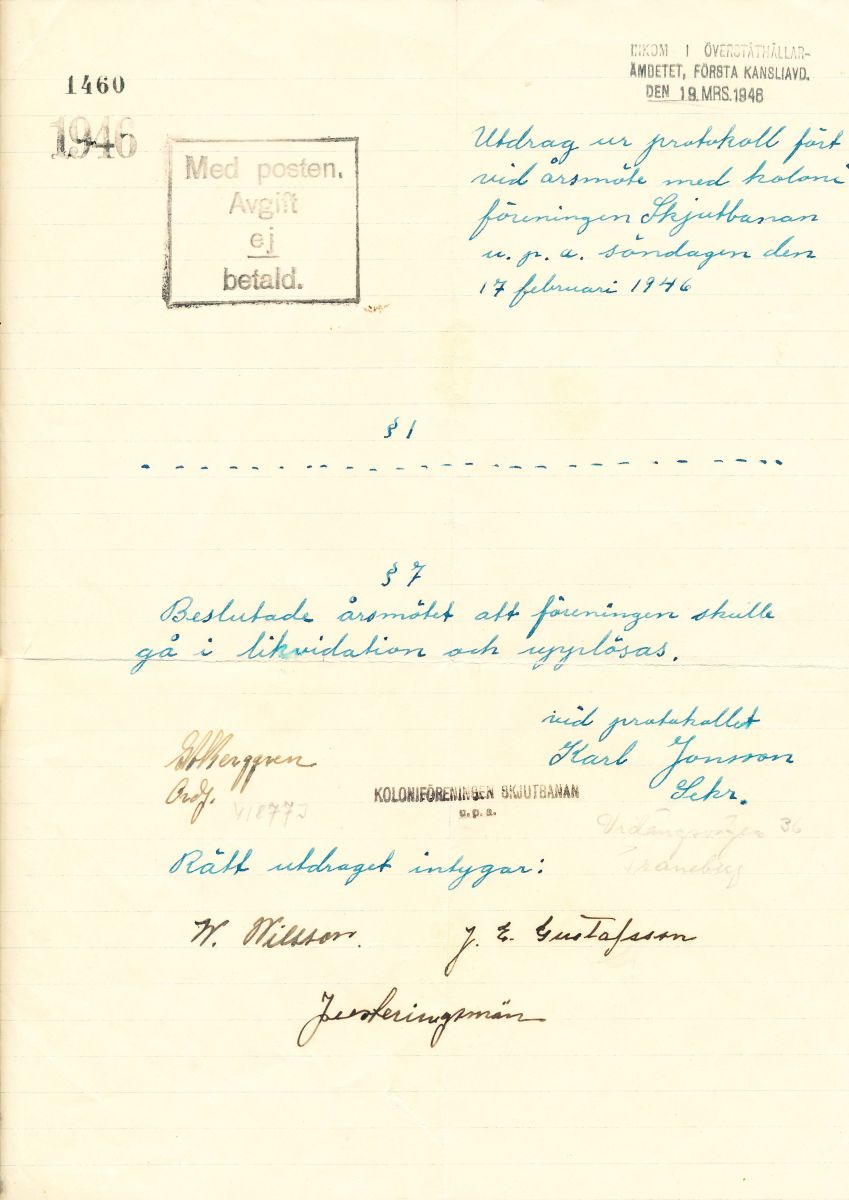 1460
1946
INKOM I ÖVERSTÅTHÅLLAR-
ÄMBETET, FÖRSTA KANSLIAVD.
DEN 19.MRS.1946
Med posten.
Avgift
ej
betald.
Utdrag ur protokoll fört
vid årsmöte med koloni
föreningen Skjutbanan
u. p. a. söndagen den
17 februari 1946
§ 1
§ 7
Beslutade årsmötet att föreningen skulle
gå i likvidation och upplösas.
vid protokollet
Karl Jonsson
Sekr.
Ordf.
KOLONIFÖRENINGEN SKJUTBANAN
u.p.a.
36
Traneberg
Rätt utdraget intygar:
W. Nilsson. J. E. Gustafsson
Justeringsmän